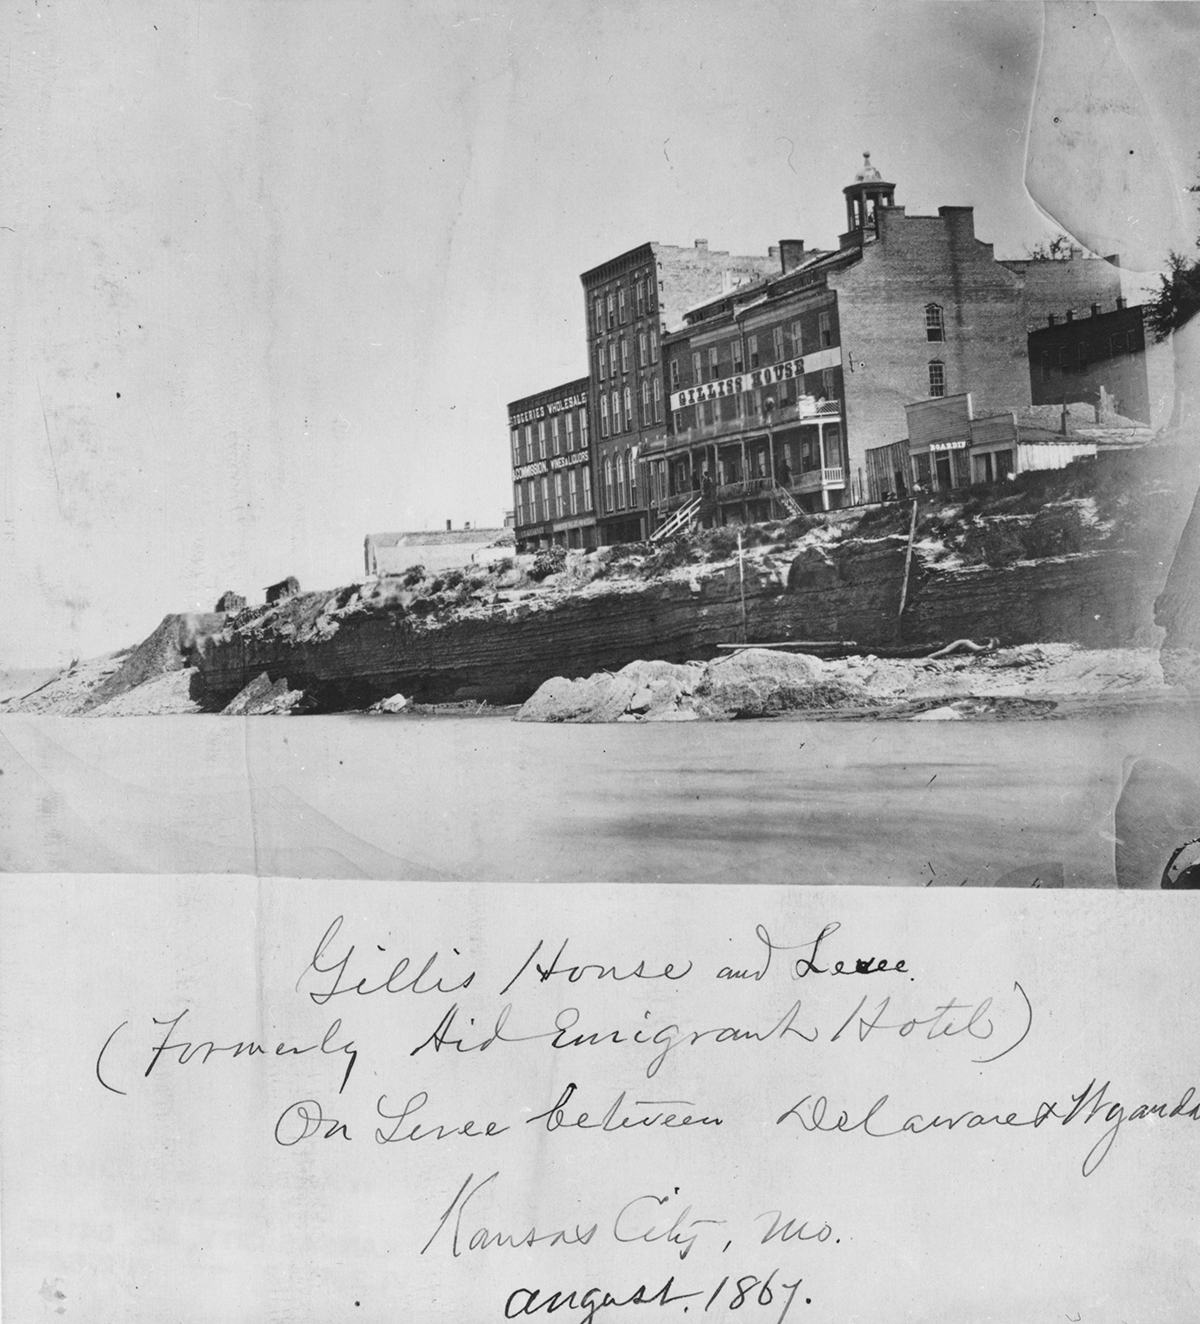 GROCERIES WHOLESALE
COMMISSION, WINES & LIQUORS
GILLISS HOUSE
BOARDIN
Gillis House and Levee.
(Formerly Aid Emigrant Hotel)
On Levee between Delaware & Wyando
Kansas City, Mo.
august. 1867.